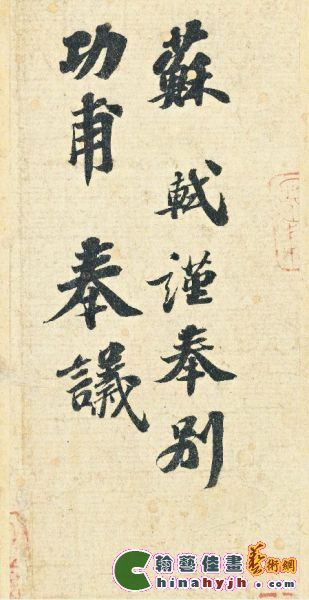 蘇軾謹奉別
功甫奉議
翰藝佳畫藝術網
Chinahyjh.com